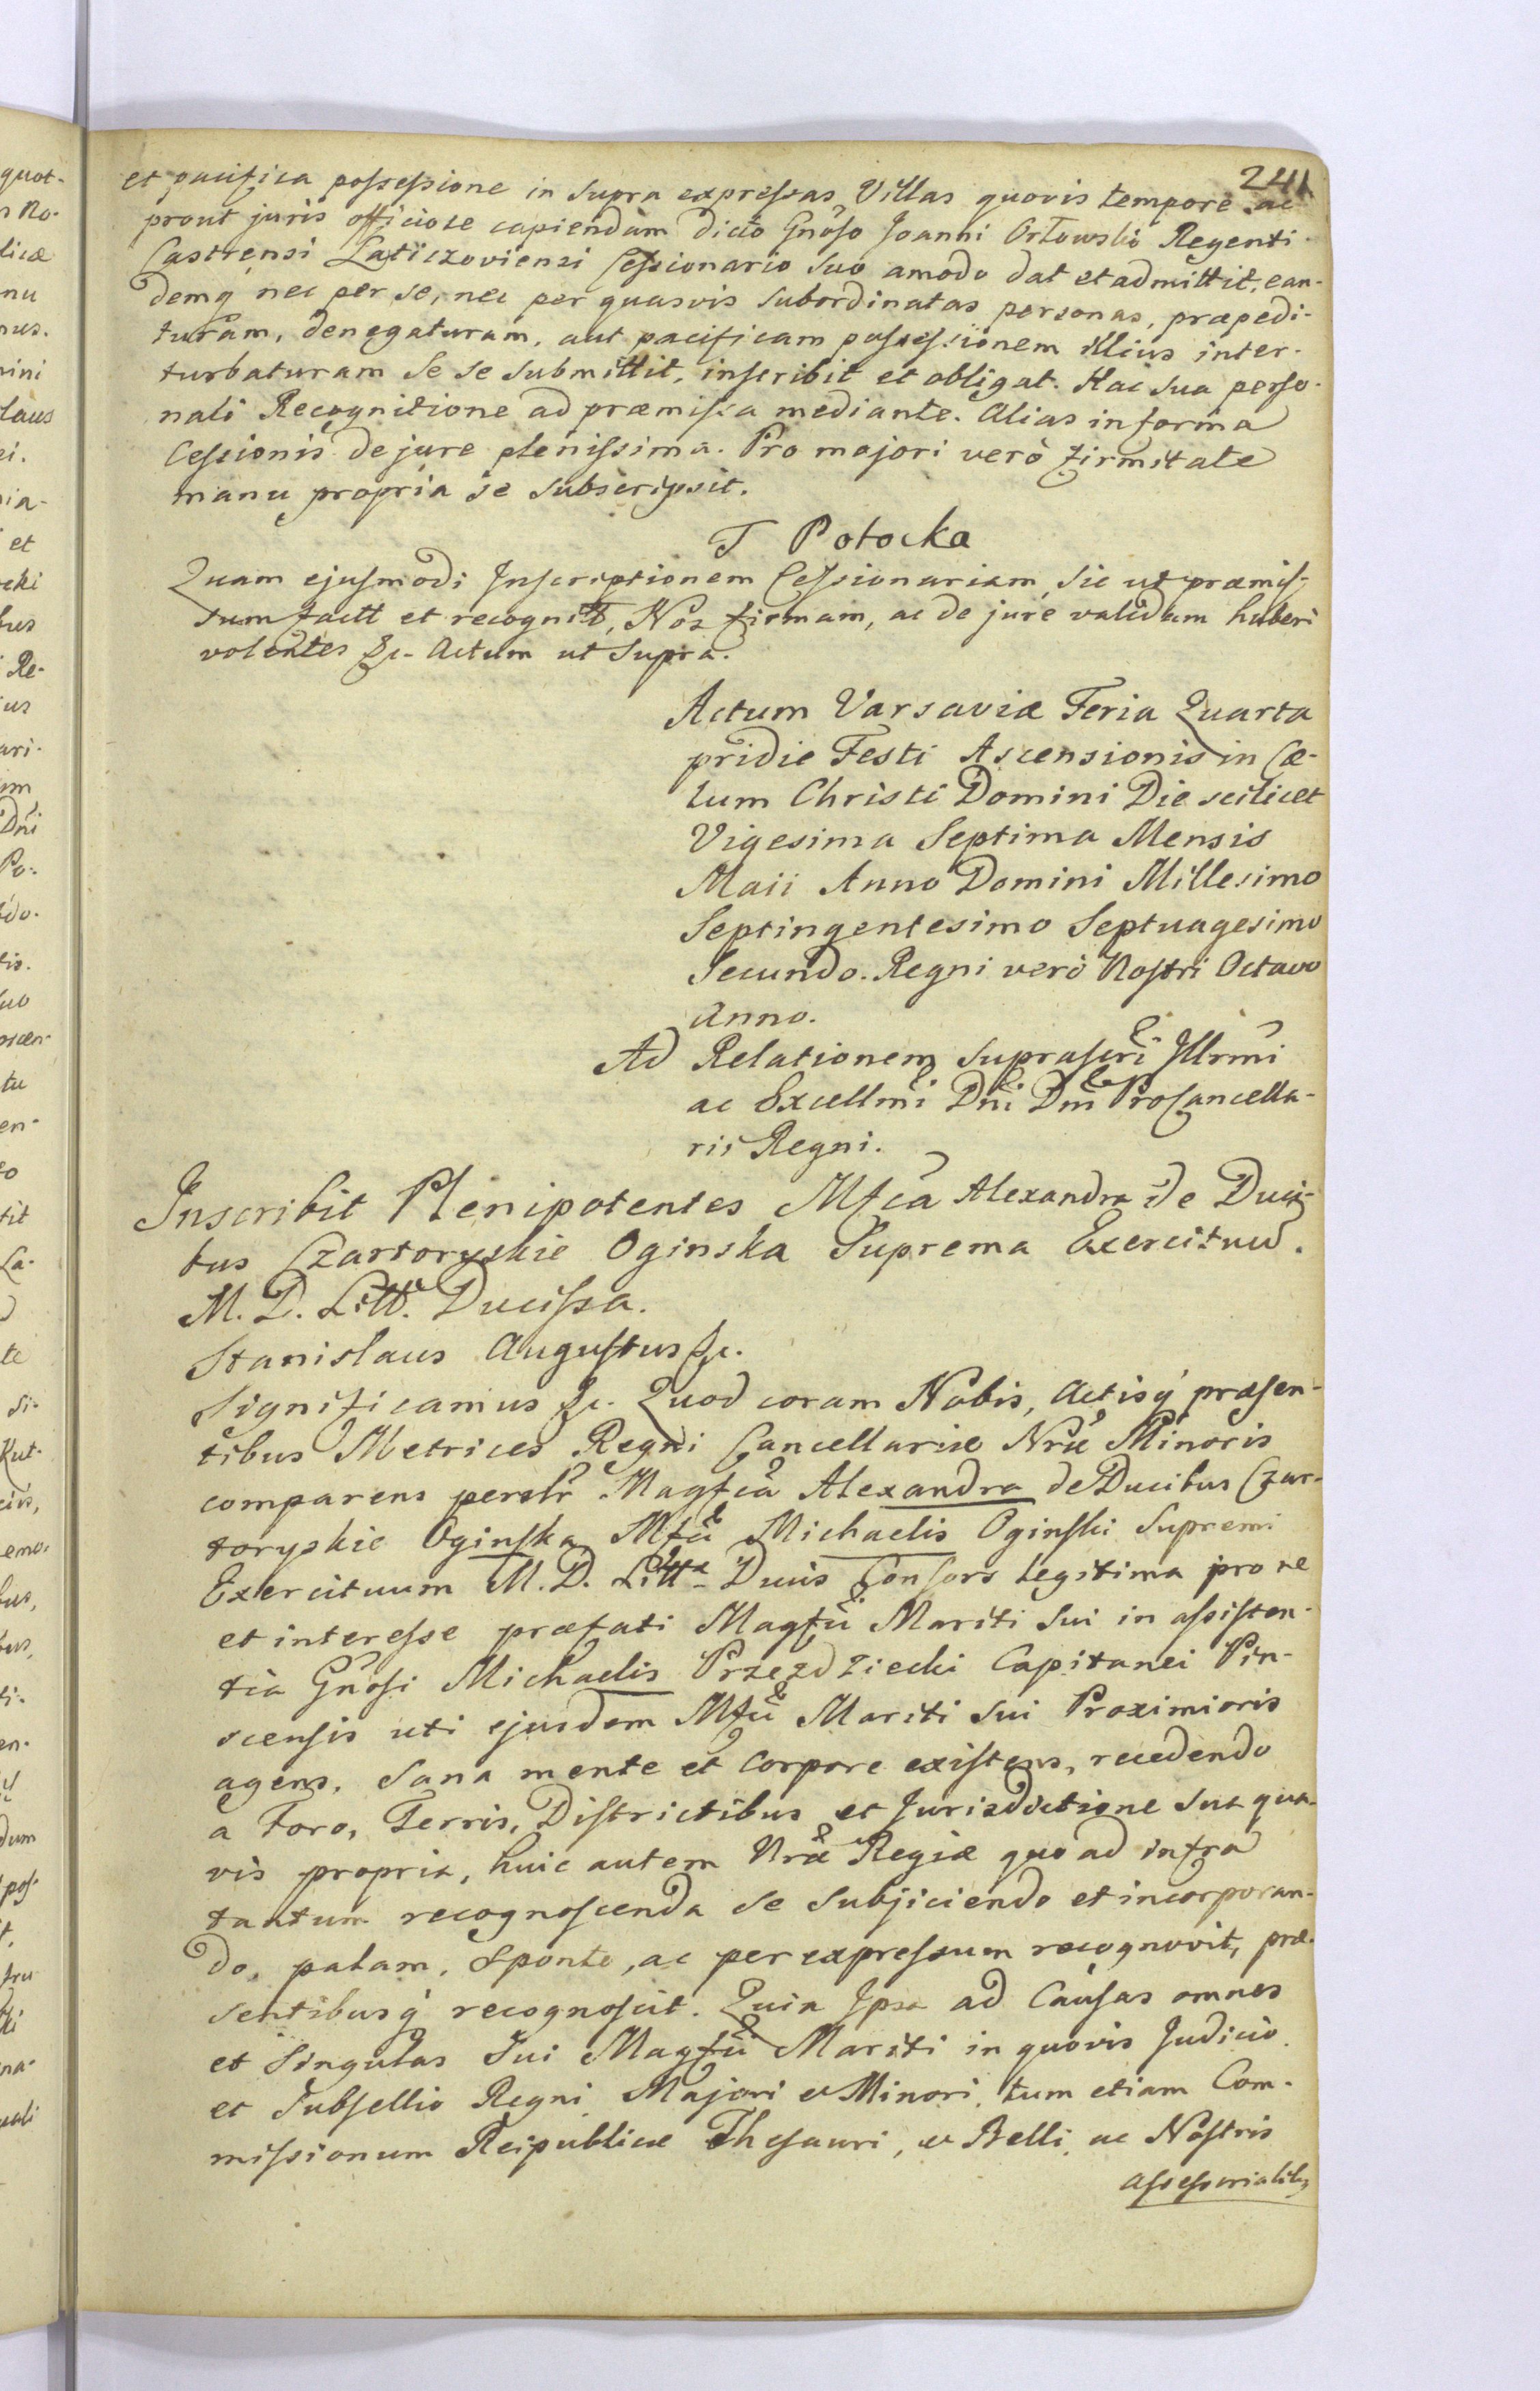 241
et pacifica possessione in supra expressas Villas quovis tempore ac
prout juris officiose capiendam dicto Gnoso Joanni Orłowski Regenti
Castrensi Laticzoviensi Cessionario suo amodo dat et admittit, ean-
demq nec per se, nec per quasvis subordinatas personas, præpedi-
turam, denegaturam, aut pacificam possessionem illius inter-
turbaturam se se submittit, inscribit et obligat. Hac sua perso-
nali Recognitione ad præmissa mediante. Alias in forma
Cessionis de jure plenissima. Pro majori verò firmitate
manu propria se subscripsit.
T Potocka
Quam ejusmodi Inscriptionem Cessionariam, sic ut præmis-
sum facit et recognit, Nos firmam, ac de jure validam haberi
volentes &c. Actum ut supra.
Actum Varsaviæ Feria Quarta
pridie Festi Ascensionis in Cæ-
lum Christi Domini Die scilicet
Vigesima Septima Mensis
Maii Anno Domini Millesimo
Septingentesimo Septuagesimo
Secundo. Regni verò Nostri Octavo
Anno.
Ad Relationem suprascri Illrmi
ac Excellmi Dni Dni ProCancella-
rii Regni.
Inscribit Plenipotentes Mfca Alexandra de Duci-
bus Czartoryskie Oginska Suprema Exercituu.
M. D. Litt. Ducissa.
Stanislaus Augustus &c.
Significamus &c. Quod coram Nobis, Actisq præsen-
tibus Metrices Regni Cancellariæ Nræ Minoris
comparens perslr Magfca Alexandra de Ducibus Czar-
toryskie Oginska Mfci Michaelis Oginski Supremi
Exercituum M. D. Litt. Ducis Consors legitima pro re
et interesse præfati Magfci Mariti sui in assisten-
tia Gnosi Michaelis Przezdziecki Capitanei Pin-
scensis uti ejusdem Mfci Mariti sui Proximioris
agens, sana mente et corpore existens, recedendo
a Foro, Terris, Districtibus et Jurisdictione sua qua-
vis propria, huic autem Nræ Regiæ quo ad infra
tantum recognoscenda se subjiciendo et incorporan-
do, palam, sponte, ac per expressum recognovit, præ-
sentibusq recognoscit. Quia Ipsa ad Causas omnes
et singulas sui Magfci Mariti in quovis Judicio
et Subsellio Regni Majori et Minori, tum etiam Com-
missionum Reipublicæ Thesauri, et Belli, ac Nostris
assessorialibq